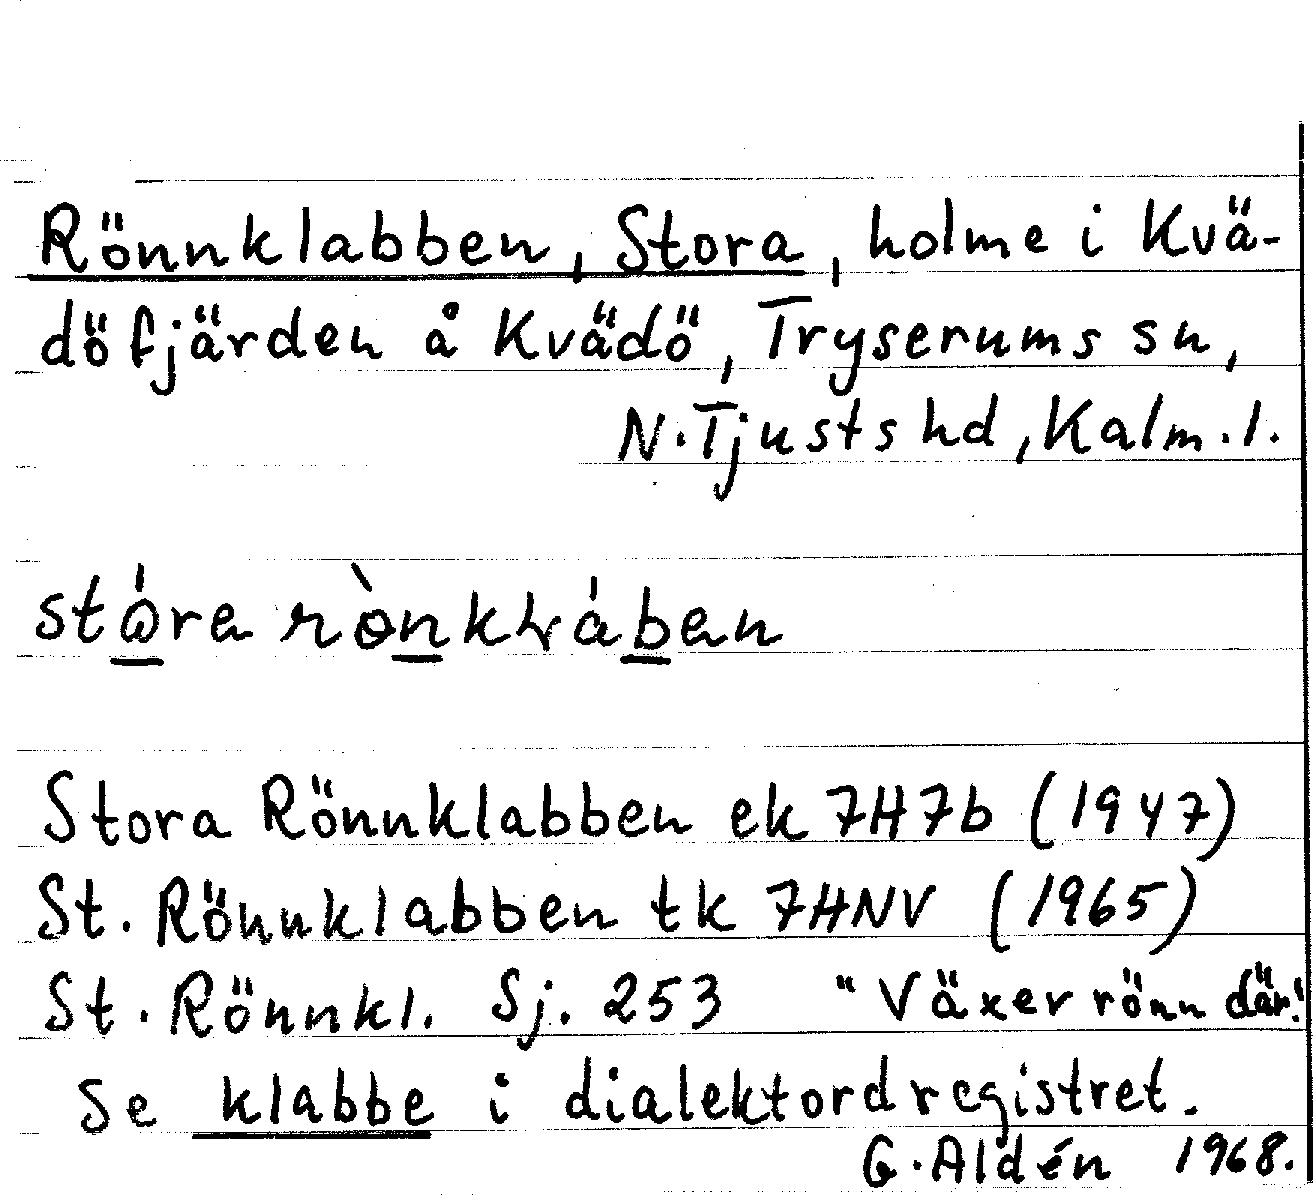 Rönnklabben, Stora, holme i Kvä-
döfjärden å Kvädö, Tryserums sn,
N. Tjusts hd, Kalm. l.
Stora Rönnklabben ek 7H7b (1947)
St. Rönnklabben tk 7HNV (1965)
St. Rönnkl. Sj. 253 "Växer rönn där!
Se klabbe i dialektordregistret.
G. Aldén 1968.